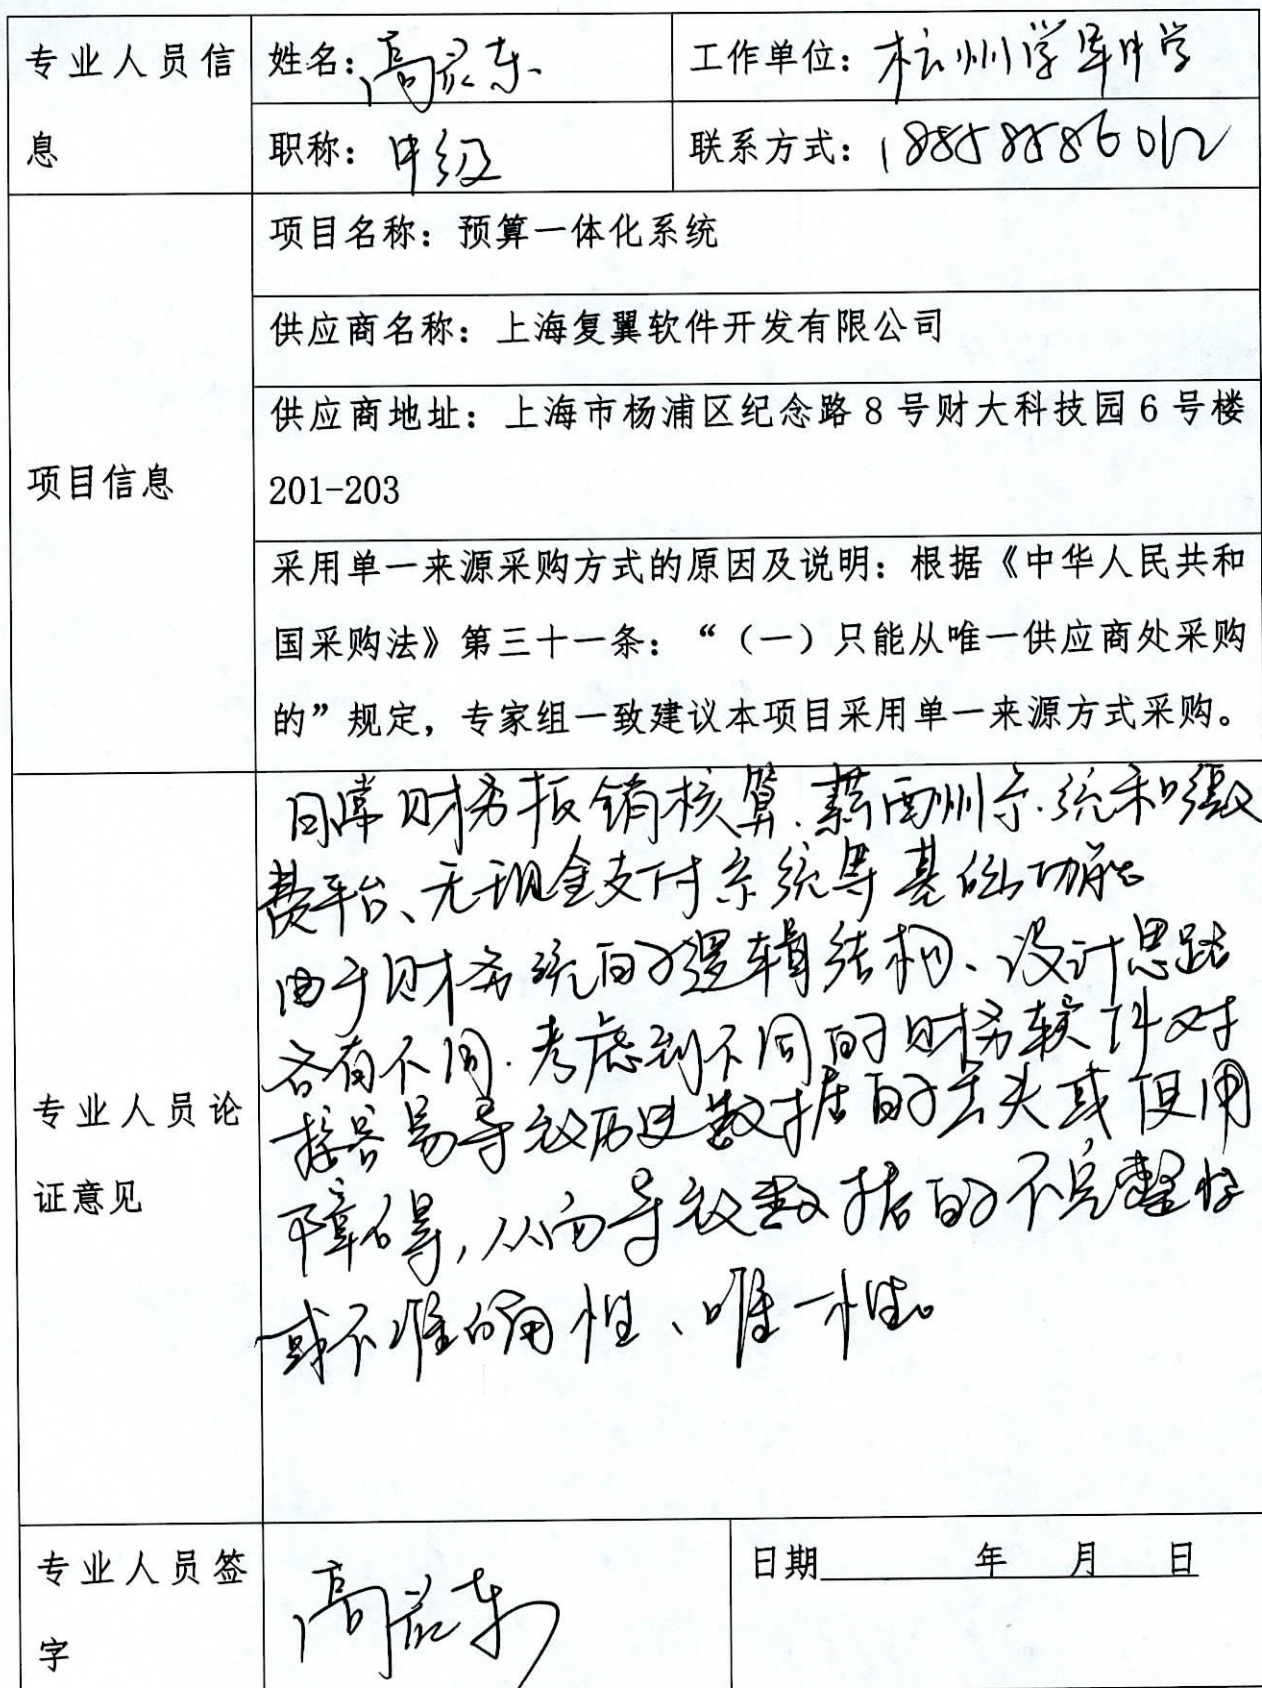 专业人员信息
姓名：高
工作单位：杭州学军中学
职称：中级
联系方式：18858586012
项目信息
项目名称：预算一体化系统
供应商名称：上海复翼软件开发有限公司
供应商地址：上海市杨浦区纪念路8号财大科技园6号楼
201-203
采用单一来源采购方式的原因及说明：根据《中华人民共和
国采购法》第三十一条：“（一）只能从唯一供应商处采购
的”规定，专家组一致建议本项目采用单一来源方式采购。
专业人员论
证意见
日常财务报销核算、薪酬系统和缴
费平台、无现金支付系统等基础功能
由于财务统的逻辑结构、设计思路
各有不同.考虑到不同的财务软件对
接容易导致历史数据的丢失或使用
障碍，从而导致数据的不完整性
或不准确性、唯一性。
专业人员签
字
高
日期 年 月 日